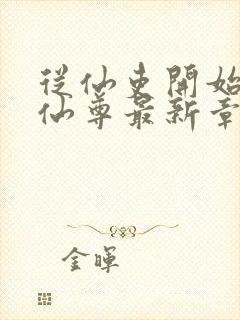 從仙吏開始
仙尊最新章
金暉